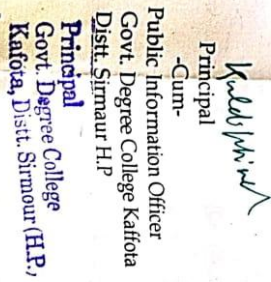 Principal
-Cum-
Public Information Officer
Govt. Degree College Kaffota
Distt. Sirmaur H.P
Principal
Govt. Degree College
Kafota, Distt. Sirmour (H.P.,